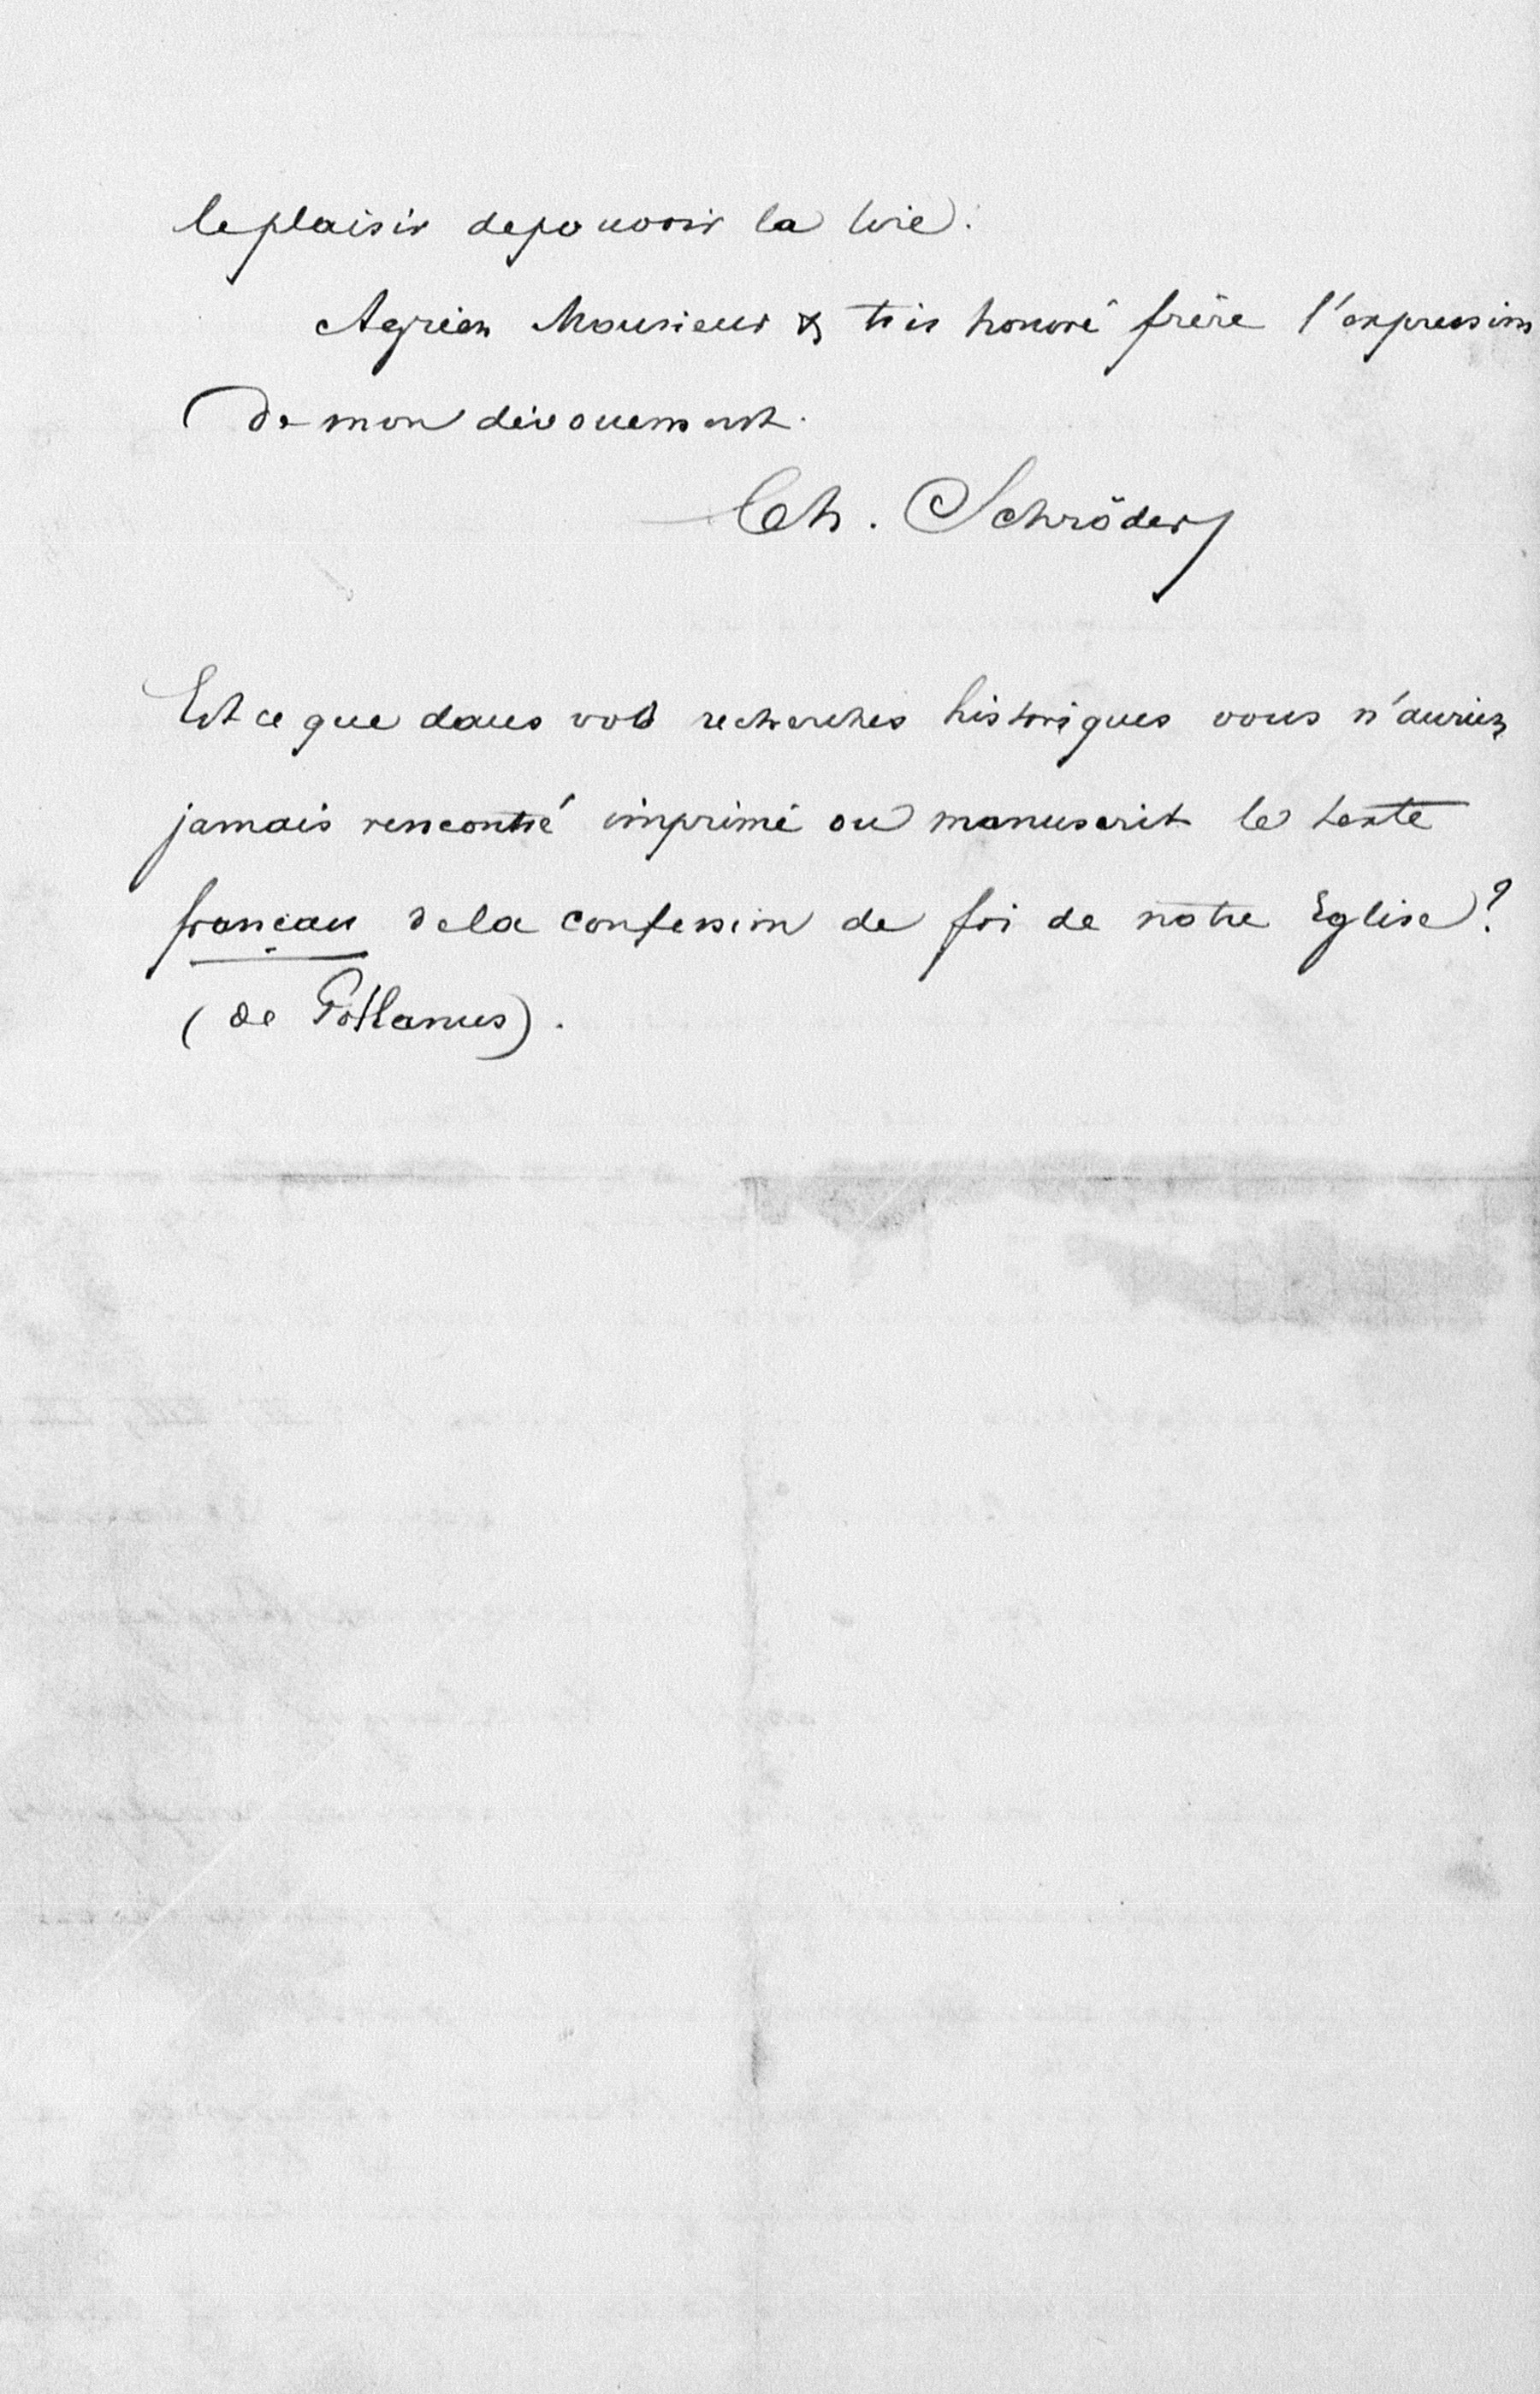 le plaisir de pouvoir la lire.
Agréez Monsieur & très honoré frère l'expression
de mon dévouement.
Ch. Schröder
Est ce que dans vos recherches historiques vous n'auriez
jamais rencontré imprimé ou manuscrit le texte
français de la confession de foi de notre Eglise?
(de Pollanus).